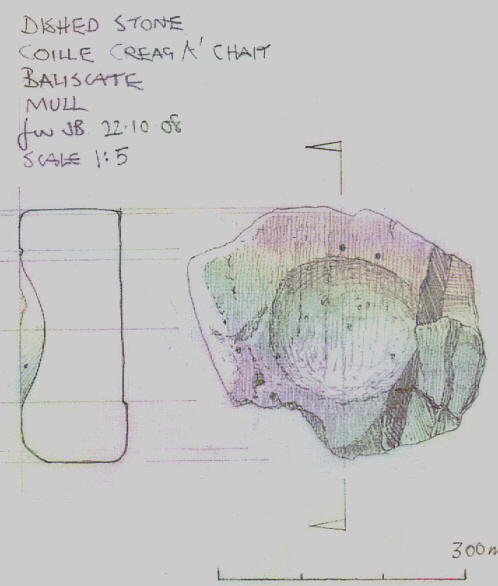 DISHED STONE
COILLE CREAG A' CHAIT
BALISCATE
MULL
JB 22.10 08
SCALE 1:5
300m